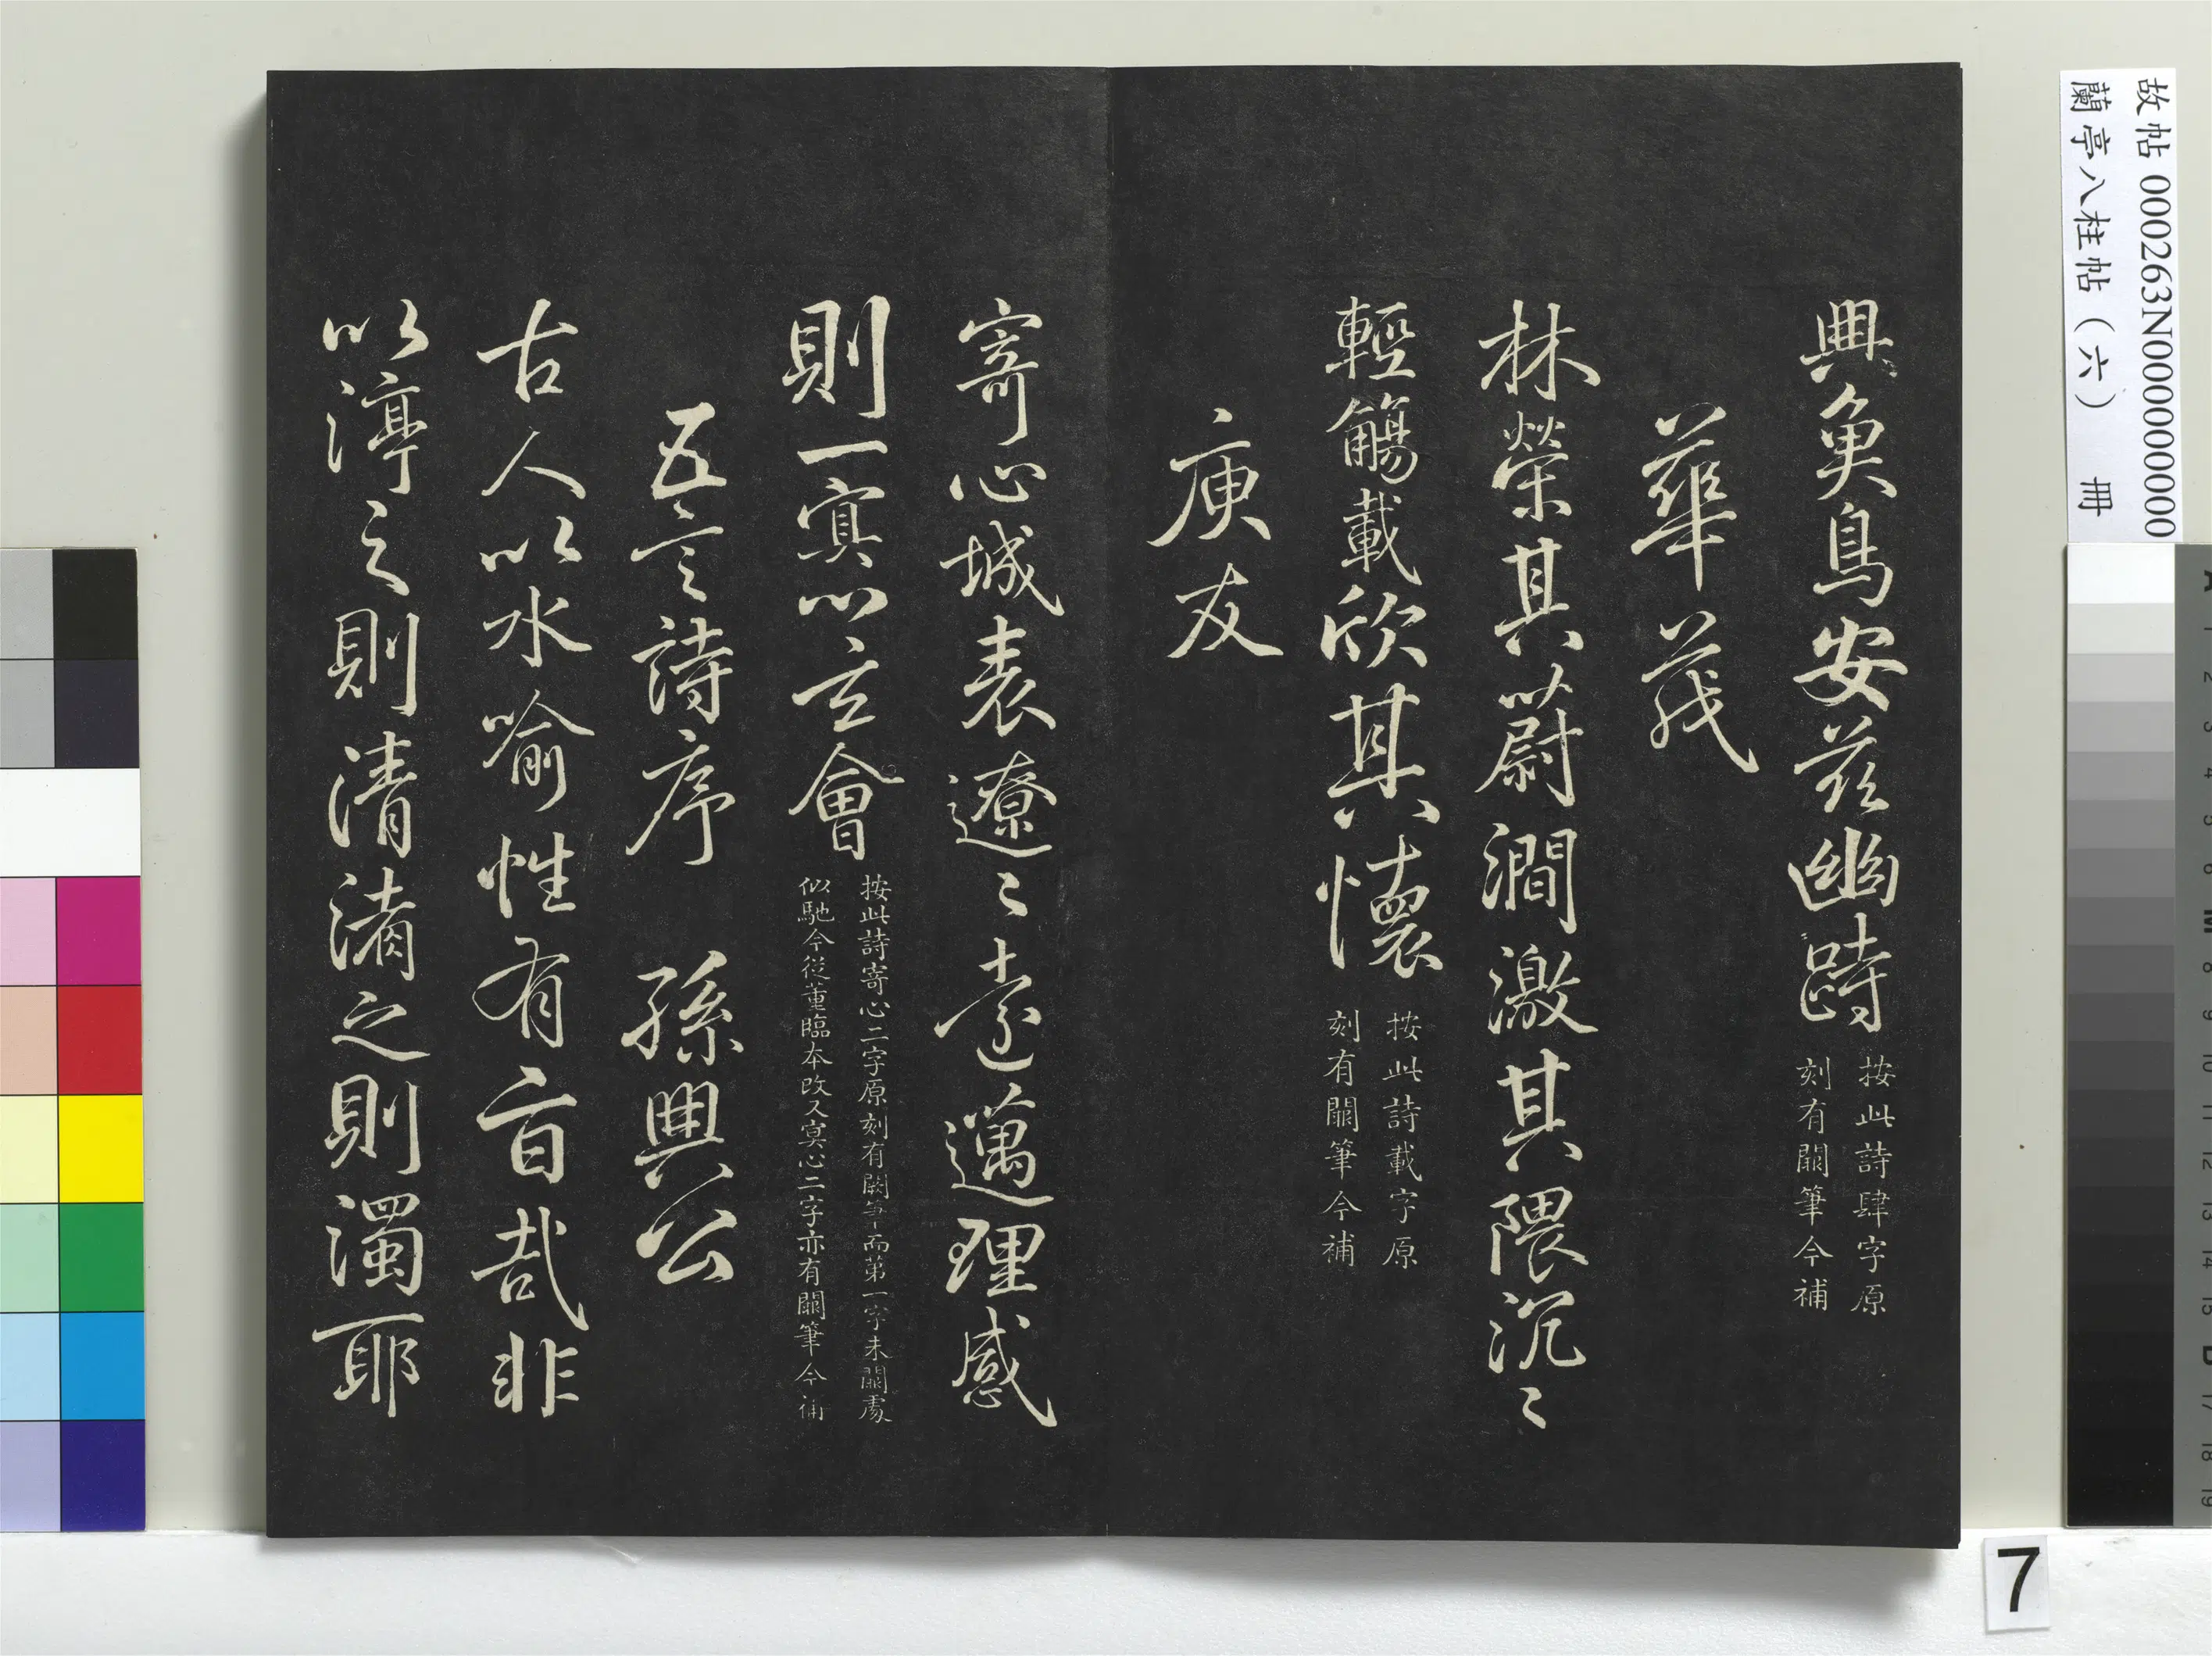 興魚鳥安茲幽跱
按此詩肆字原
刻有闕筆今補
華茂
林榮其蔚澗激其隈沉〻
輕觴載欣其懷
按此詩載字原
刻有闕筆今補
庾友
寄心城表遼〻遠邁理感
則一冥心玄會
按此詩寄心二字原刻有闕筆而第一字未闕處
似馳今從董臨本改又冥心二字亦有闕筆今補
五言詩序 孫興公
古人以水喻性有旨哉非
以渟之則清淆之則濁耶
故帖 000263N000000000
蘭亭八柱帖（六） 冊
7